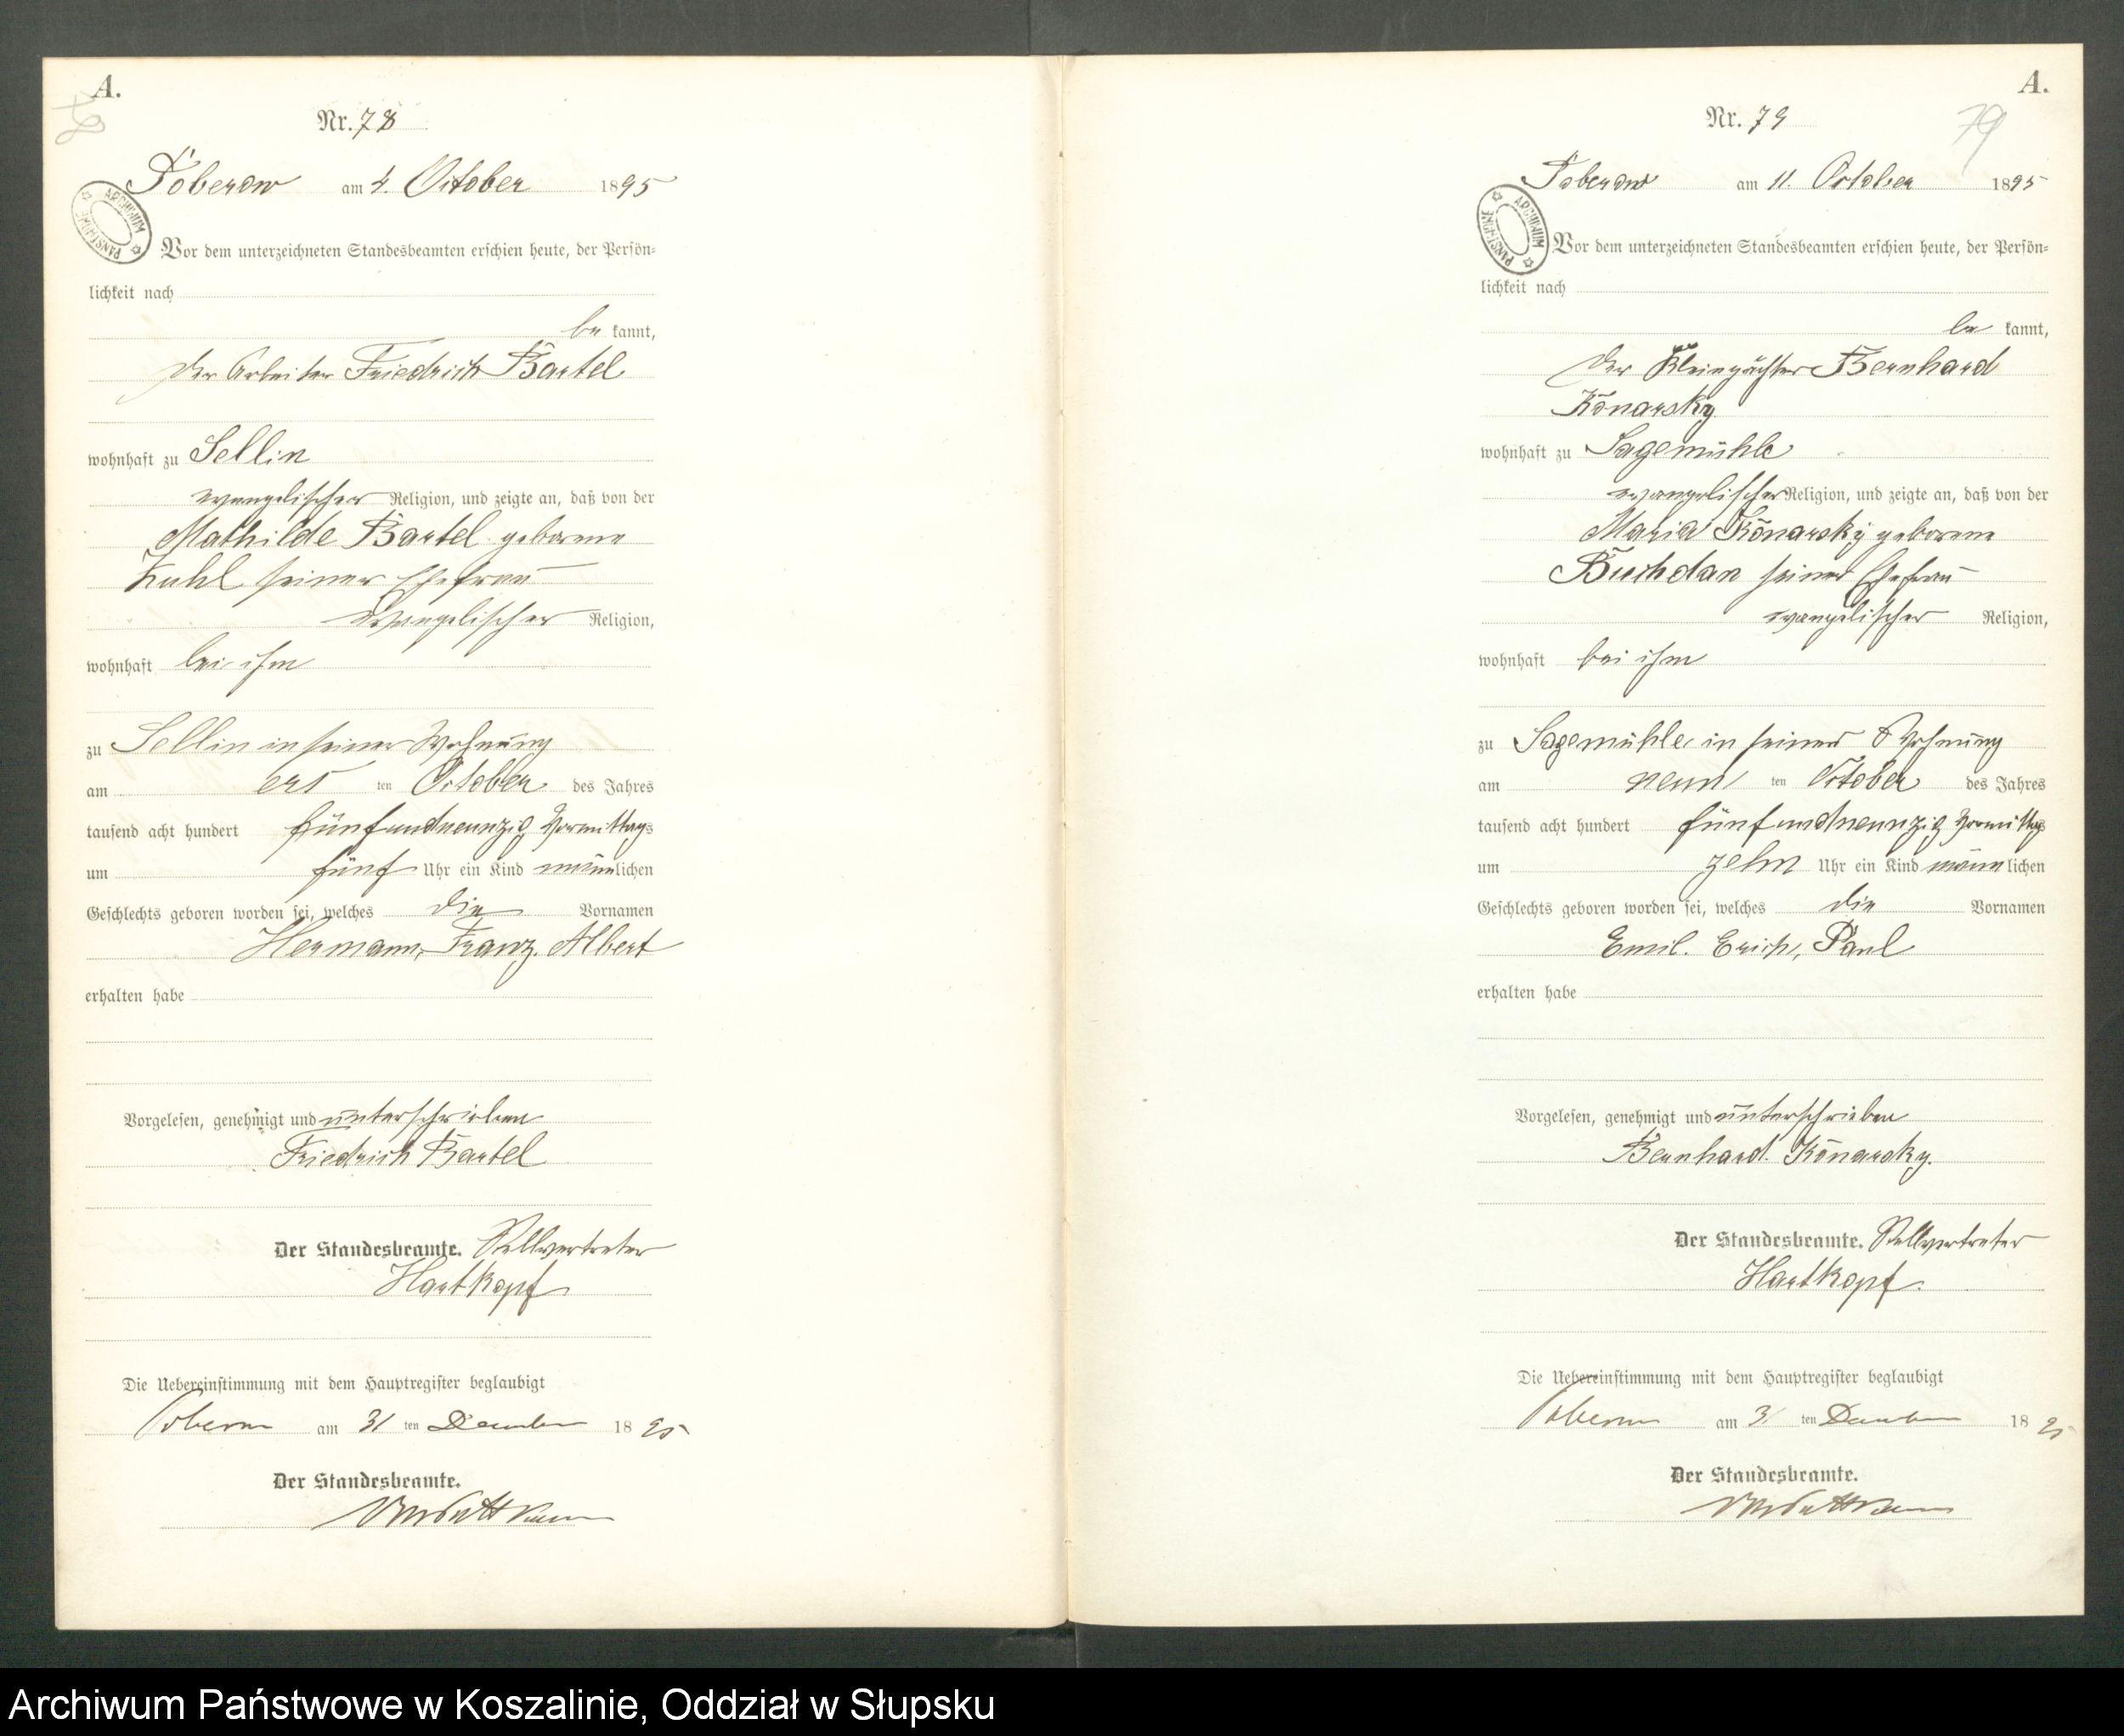 A.
78
Nr. 78
Poberow am 4. October 1895
ARCHIWUM PAŃSTWOWE
Vor dem unterzeichneten Standesbeamten erschien heute, der Persön=
lichkeit nach
be kannt,
der Arbeiter Friedrich Bartel
wohnhaft zu Sellin
evangelischer Religion, und zeigte an, daß von der
Mathilde Bartel geborene
Kuhl seiner Ehefrau
evangelischer Religion,
wohnhaft bei ihm
zu Sellin in seiner Wohnung
am ers ten October des Jahres
tausend acht hundert fünfundneunzig Vormittags
um fünf Uhr ein Kind männlichen
Geschlechts geboren worden sei, welches die Vornamen
Hermann, Franz. Albert
erhalten habe
Vorgelesen, genehmigt und unterschrieben
Friedrich Bartel
Der Standesbeamte. Stellvertreter
Hartkopf
Die Uebereinstimmung mit dem Hauptregister beglaubigt
Poberow am 31 ten December 18 95
Der Standesbeamte.
A.
79
Nr. 79
Poberow am 11. October 1895
ARCHIWUM PAŃSTWOWE
Vor dem unterzeichneten Standesbeamten erschien heute, der Persön=
lichkeit nach
be kannt,
der Kleinpächter Bernhard
Konarsky
wohnhaft zu Sagemühle
evangelischer Religion, und zeigte an, daß von der
Maria Konarsky geborene
Buchdan seiner Ehefrau
evangelischer Religion,
wohnhaft bei ihm
zu Sagemühle in seiner Wohnung
am neun ten October des Jahres
tausend acht hundert fünfundneunzig Vormittags
um zehn Uhr ein Kind männlichen
Geschlechts geboren worden sei, welches die Vornamen
Emil. Erich, Paul
erhalten habe
Vorgelesen, genehmigt und unterschrieben
Bernhard. Konarsky.
Der Standesbeamte. Stellvertreter
Hartkopf.
Die Uebereinstimmung mit dem Hauptregister beglaubigt
Poberow am 31 ten December 18 95
Der Standesbeamte.
Archiwum Państwowe w Koszalinie, Oddział w Słupsku